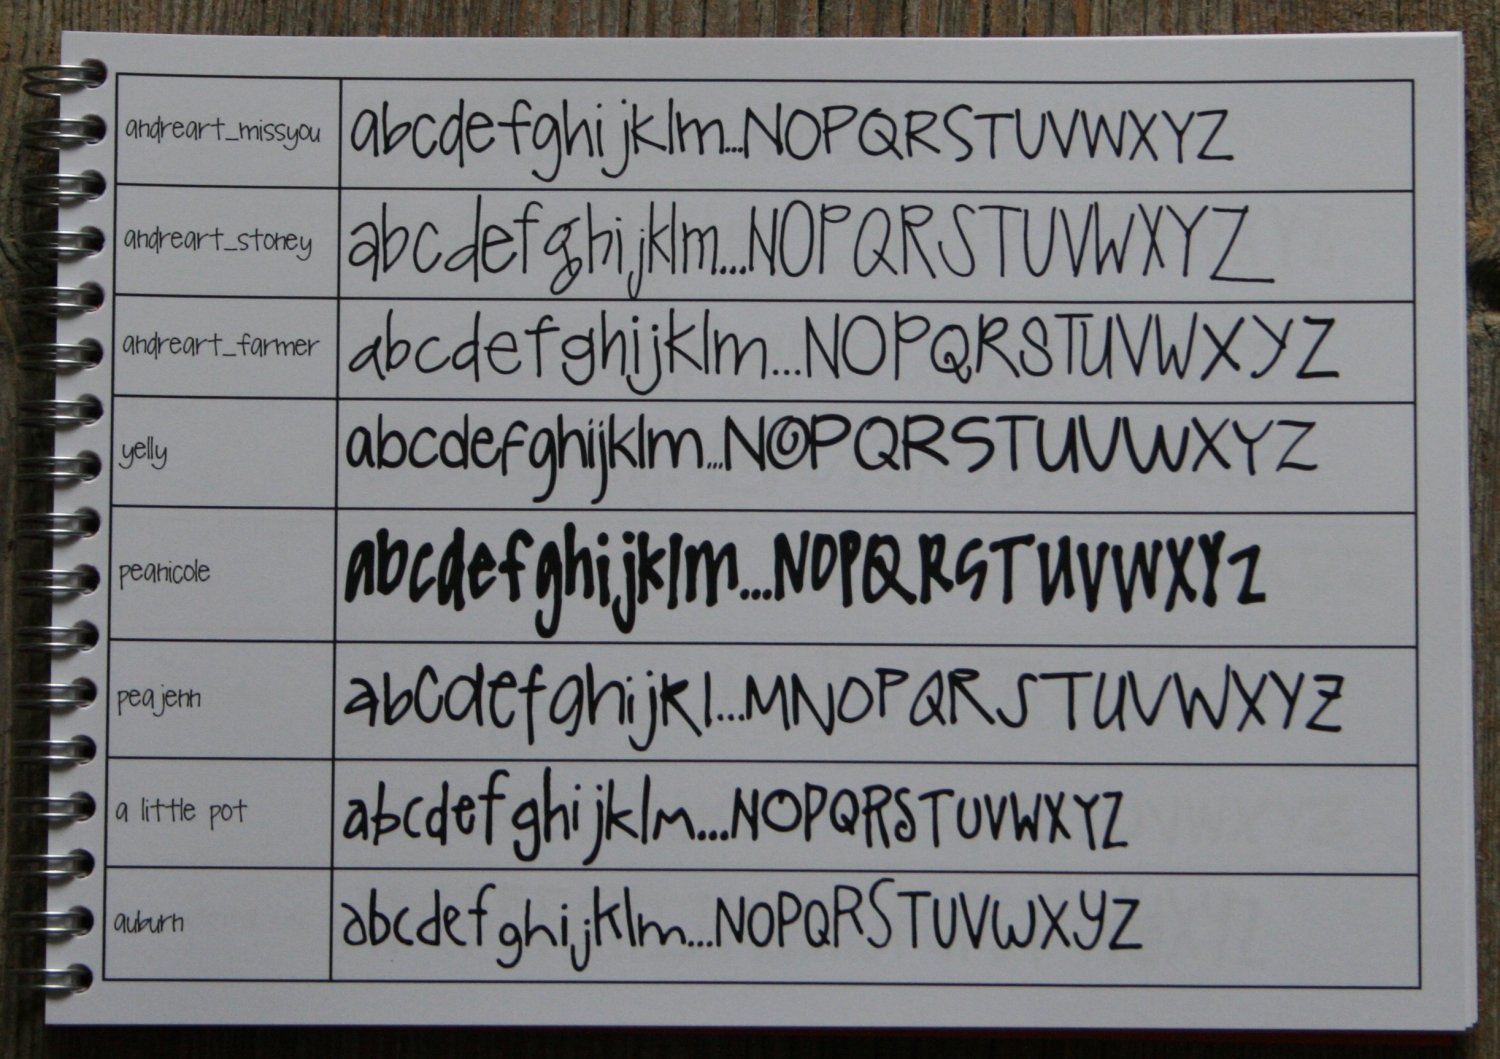 andreart_missyou abcdefghijklm...NOPQRSTUVWXYZ
andreart_stoney abcdefghijklm...NOPQRSTUVWXYZ
andreart_farmer abcdefghijklm...NOPQRSTUVWXYZ
yelly abcdefghijklm...NOPQRSTUVWXYZ
peanicole abcdefghijklm...NOPQRSTUVWXYZ
peajenn abcdefghijkl...MNOPQRSTUVWXYZ
a little pot abcdefghijklm...NOPQRSTUVWXYZ
auburn abcdefghijklm...NOPQRSTUVWXYZ